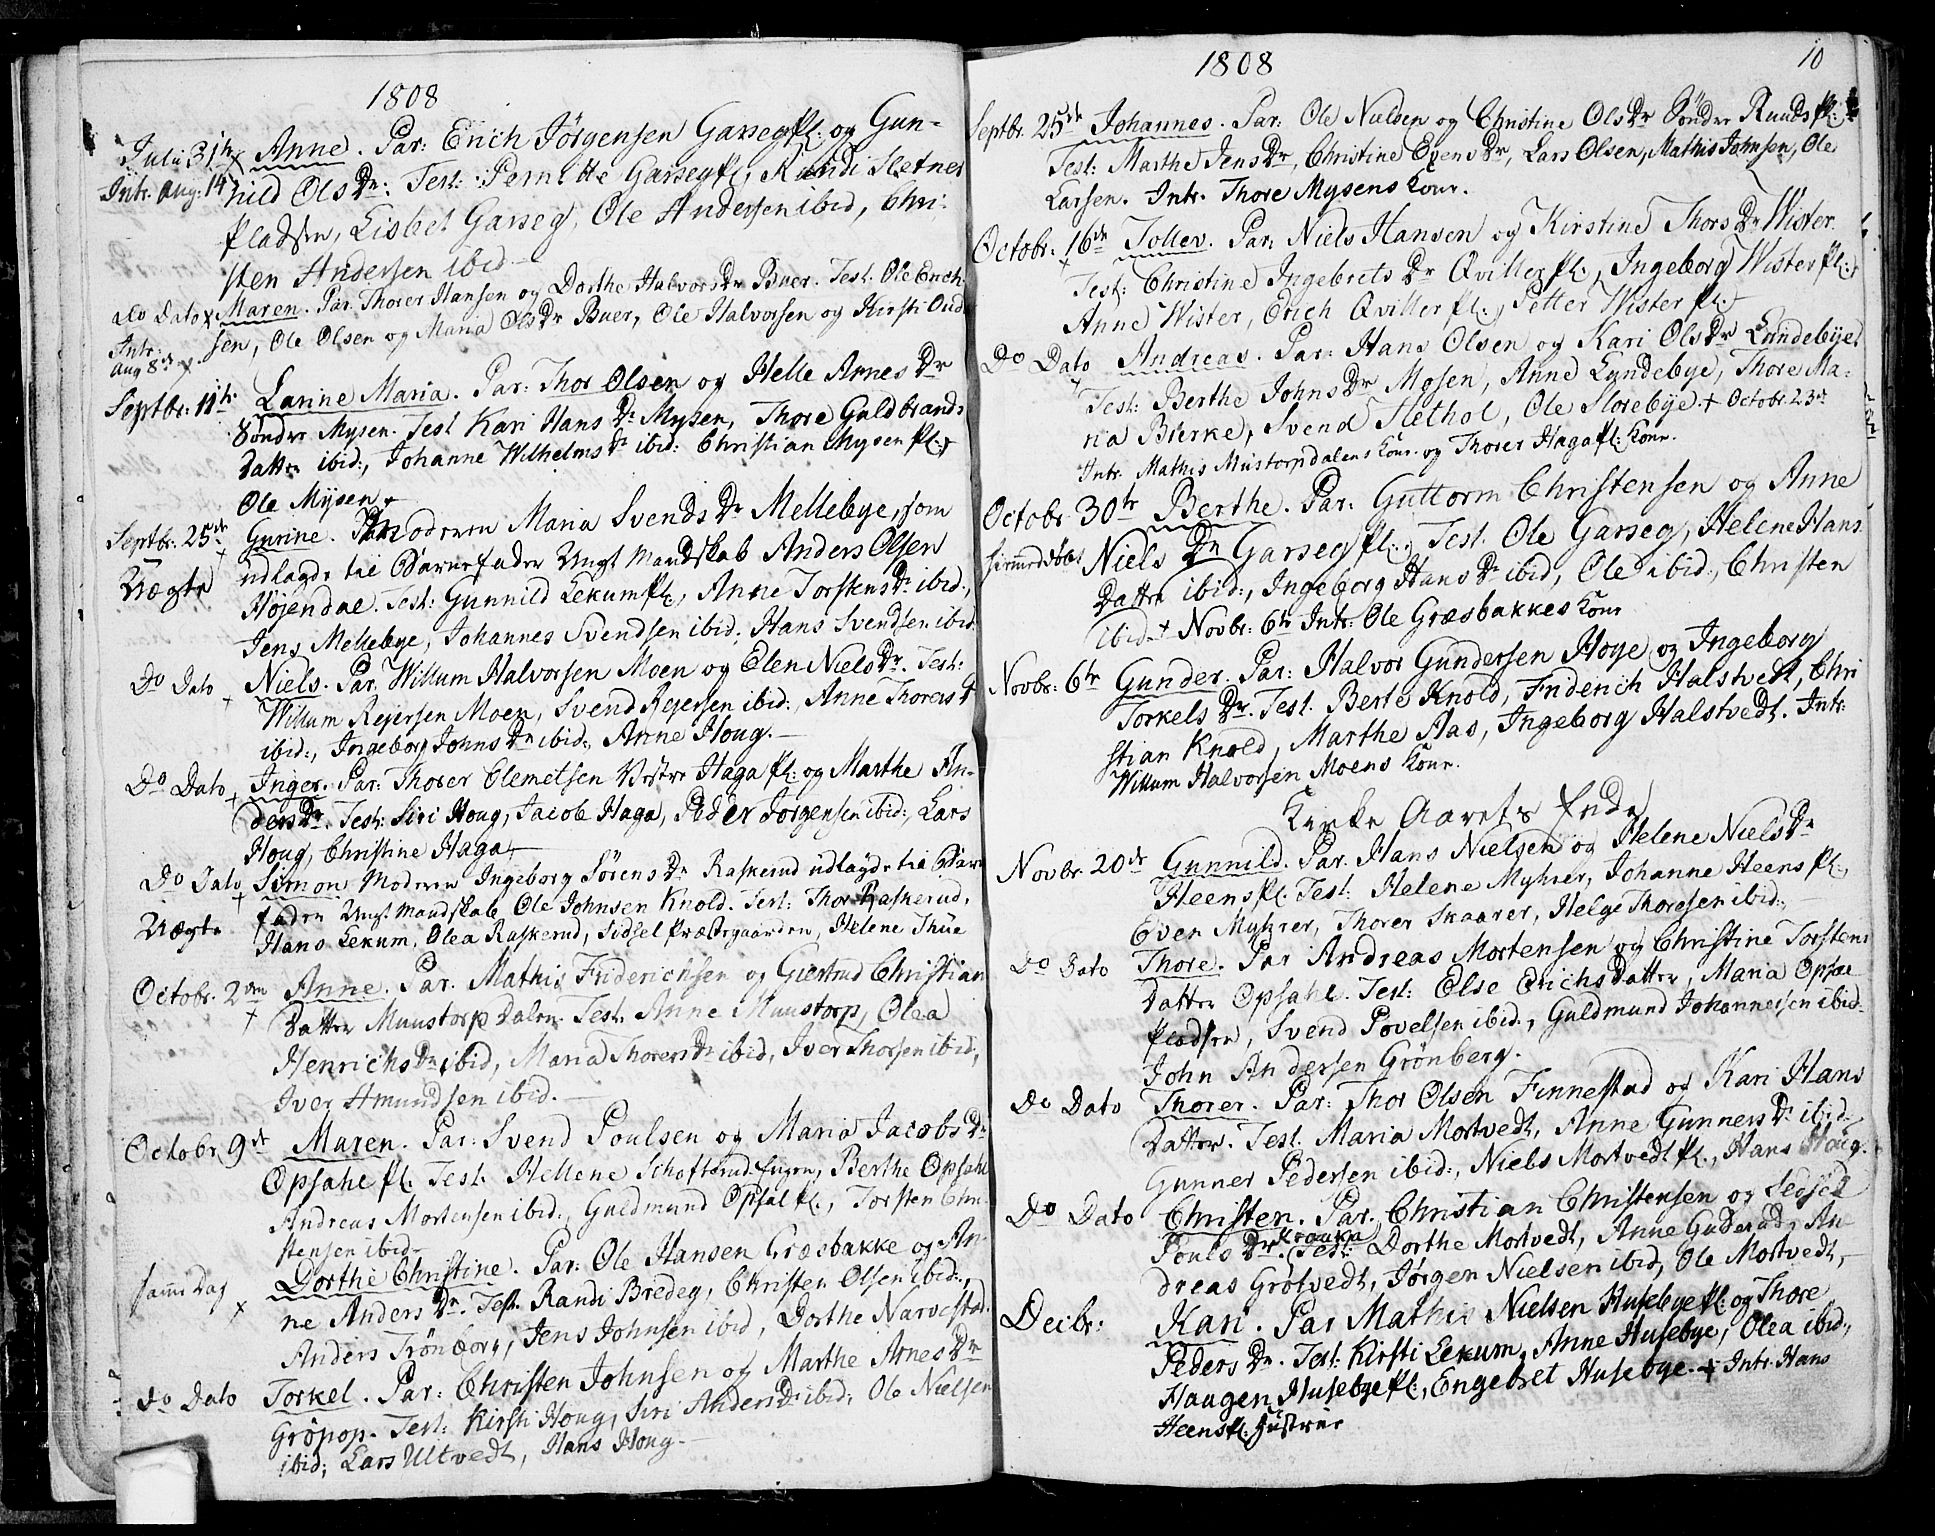 1808
Julii 31te x Anne. Par: Erich Jörgensen Garsegpl: og Gun-
Intr. Aug: 14 nild OlsDr: Test: Pernette Garsegpl:, Randi Sletnes
Pladsen, Lisbet Garseg, Ole Andersen ibid, Chri-
sten Andersen ibid
do Dato x Maren. Par. Thorer Hansen og Dorthe HalvorsDr Buer. Test: Ole Erich-
Intr. Aug 8de x. sen, Ole Olsen og Maria OlsDr Buer, Ole Halvorsen og Kirsti Oud
Septbr: 11te Larine Maria. Par: Thor Olsen og Helle ArnesDr
Sönder Mysen. Test Kari HansDr Mysen, Thore Guldbrands
Datter ibid:, Johanne WilhelmsDr ibid: Christian Mysenpl:,
Ole Mysen +
Septbr: 25de Gurine. Moderen Maria SvendsDr Mellebye, som
Uægte udlagde til Barnefader Ungt Mandskab Anders Olsen
Höjendal. Test: Gunnild Lekumpl:, Anne TorstensDr ibid:,
Jens Mellebye, Johannes Svendsen ibid: Hans Svendsen ibid
Do Dato + Niels. Par. Willum Halvorsen Moen og Elen NielsDr. Test:
Willum Rejersen Moen, Svend Rejersen ibid:, Anne ThorersD
ibid:, Ingeborg JohnsDr ibid:, Anne Houg.-
Do Dato + Inger. Par: Thorer Clemetsen Vestre Hagapl: og Marthe An-
dersDr. Test: Siri Houg, Jacob Haga, Peder Jörgensen ibid:, Lars
Houg, Christine Haga,-
Do Dato + Simon. Moderen Ingeborg SörensDr Raskerud udlagde til Barne
Uægte fader Ungt Mandskab Ole Johnsen Knold. Test: Thor Raskerud,
Hans Lekum, Olea Raskerud, Sidsel Præstegaarden, Helene Thue
Octobr. 2den + Anne. Par. Mathis Friderichsen og Giertrud Christian
Datter Muustorp Dalen. Test. Anne Muustorp, Olea
HenrichsDr ibid, Maria ThorersDr ibid, Iver Thorsen ibid:,
Iver Amundsen ibid.-
Octobr. 9de Maren. Par: Svend Poulsen og Maria JacobsDr
Opsahlpl: Test. Hellene Schofterud-Engen, Berthe Opsahl
Andreas Mortensen ibid:, Guldmund Opsalpl:, Torsten Chri-
stensen ibid-
samme Dag x Dorthe Christine. Par: Ole Hansen Græsbakke og An-
ne AndersDr. Test. Randi Bredeg, Christen Olsen ibid:,
Anders Trönborg, Jens Johnsen ibid, Dorthe Narvestad.
do Dato Torkel. Par: Christen Johnsen og Marthe ArnesDr
Gröpop. Test: Kirsti Houg, Siri AndersDr ibid: Ole Nielsen
ibid; Lars Ultvedt, Hans Houg.-
1808
10
Septbr. 25de Johannes. Par: Ole Nulden og Christine OlsDr Sönder Ruudspl:
Test: Marthe JensDr, Christine EvensDr, Lars Olsen, Mathis Johnsen, Ole
Larsen. Intr. Thore Mysens Kone.
Octobr: 16de + Tollev. Par: Niels Hansen og Kirstine ThorsDr Wister.
Test: Christine IngebretsDr Qvillerpl:, Ingeborg Wisterpl:,
Anne Wister, Erich Qvillerpl:, Petter Wisterpl:
Do Dato Andreas. Par: Hans Olsen og Kari OlsDr Lundebye.
Test: Berthe JohnsDr Mosen, Anne Lundebye, Thore Ma-
ria Bierke, Svend Slethol, Ole Slorebye. + Octobr: 23de
Intr. Mathis Mustorpdalens Kone og Thorer Hagapl: Kone.
Octobr. 30te Berthe. Par: Guttorm Christensen og Anne
hiemmedöbt NielsDr Garsegpl:, Test. Ole Garseg, Helene Hans
Datter ibid:, Ingeborg HansDr ibid, Ole ibid:, Christen
ibid. + Novbr: 6te Intr: Ole Græsbakkes Kone
Novbr: 6te Gunder. Par: Halvor Gundersen Hoye og Ingeborg
TorkelsDr. Test. Berte Knold, Friderich Halstvedt, Chri
stian Knold, Marthe Aas, Ingeborg Halstvedt. Intr:
Willum Halvorsen Moens Kone.
Kirke Aarets Ende
Novbr. 20de Gunnild. Par. Hans Nielsen og Helene NielsDr
Heenspl: Test: Helene Myhrer, Johanne Heenspl:,
Even Myhrer, Thorer Skaarer, Helge Thoresen ibid:,-
Do Dato Thore. Par Andreas Mortensen og Christine Torstens
Datter Opsahl. Test: Else Erichs Datter, Maria Opsal
Pladsen, Svend Povelsen ibid:, Guldmund Johannesen ibid-
John Andersen Grönberg.
Do Dato Thorer. Par: Thor Olsen Finnestad og Kari Hans
Datter. Test. Maria Mortvedt, Anne GunnersDr ibid:,
Gunner Pedersen ibid:, Niels Mortvedtpl:, Hans Houg.
Do Dato Christen. Par. Christian Christensen og Sedsel
PoulsDr Krauka. Test: Dorthe Mortvedt, Anne Guderud, An-
dreas Grötvedt, Jörgen Nielsen ibid, Ole Mortvedt,-
Decbr: Kari. Par Mathis Nielsen Husebyepl: og Thore
PedersDr. Test: Kirsti Lekum, Anne Husebye, Olea ibid:,
Haagen Husebyepl:, Engebret Husebye.- + Intr. Hans
Heenspl: Hustrue